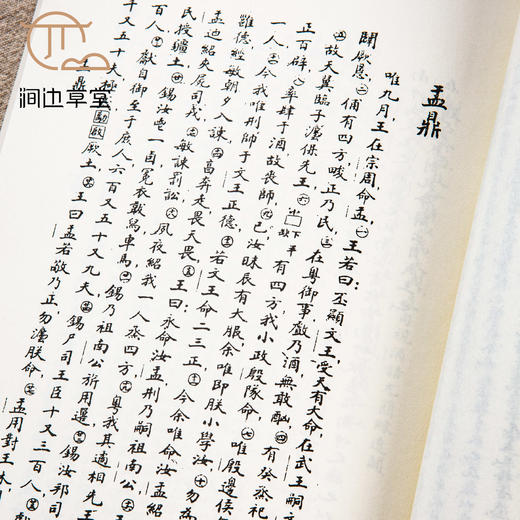 澗边草堂
盂鼎
唯九月王在宗周,命盂㊀王若曰:丕顯文王受天有大命,在武王嗣文
闢厥慝㊁佣有四方畯正乃民㊂在粤御事,乃酒無敢酖㊃有烝祀
㊄故天翼臨子灋保先王㊅故下半有四方我小政殷隊命㊆唯殷邊侯
正百辟率肆于酒故喪師㊈已汝昧辰有大服余唯即朕小學汝㊉勿為
一人今我唯刑師于文王正德若文王命二三正今余唯命汝盂紹
雝德經敏朝夕入諫享奔走畏天畏王曰永命汝盂刑乃嗣祖南公王
盂迺紹夾屍司戎敏諫罰訟夙夜紹我一人烝四方粤我其遹相先王
民授疆土錫汝鬯一卣冕衣韍舄車馬錫乃祖南公旂用遷錫汝邦司
百人獻自御至于庶人六百又五十又九夫錫尸司王臣十又三百人
又五十夫厥土王曰盂若敬乃正勿灋朕命盂用對王休
王鼎